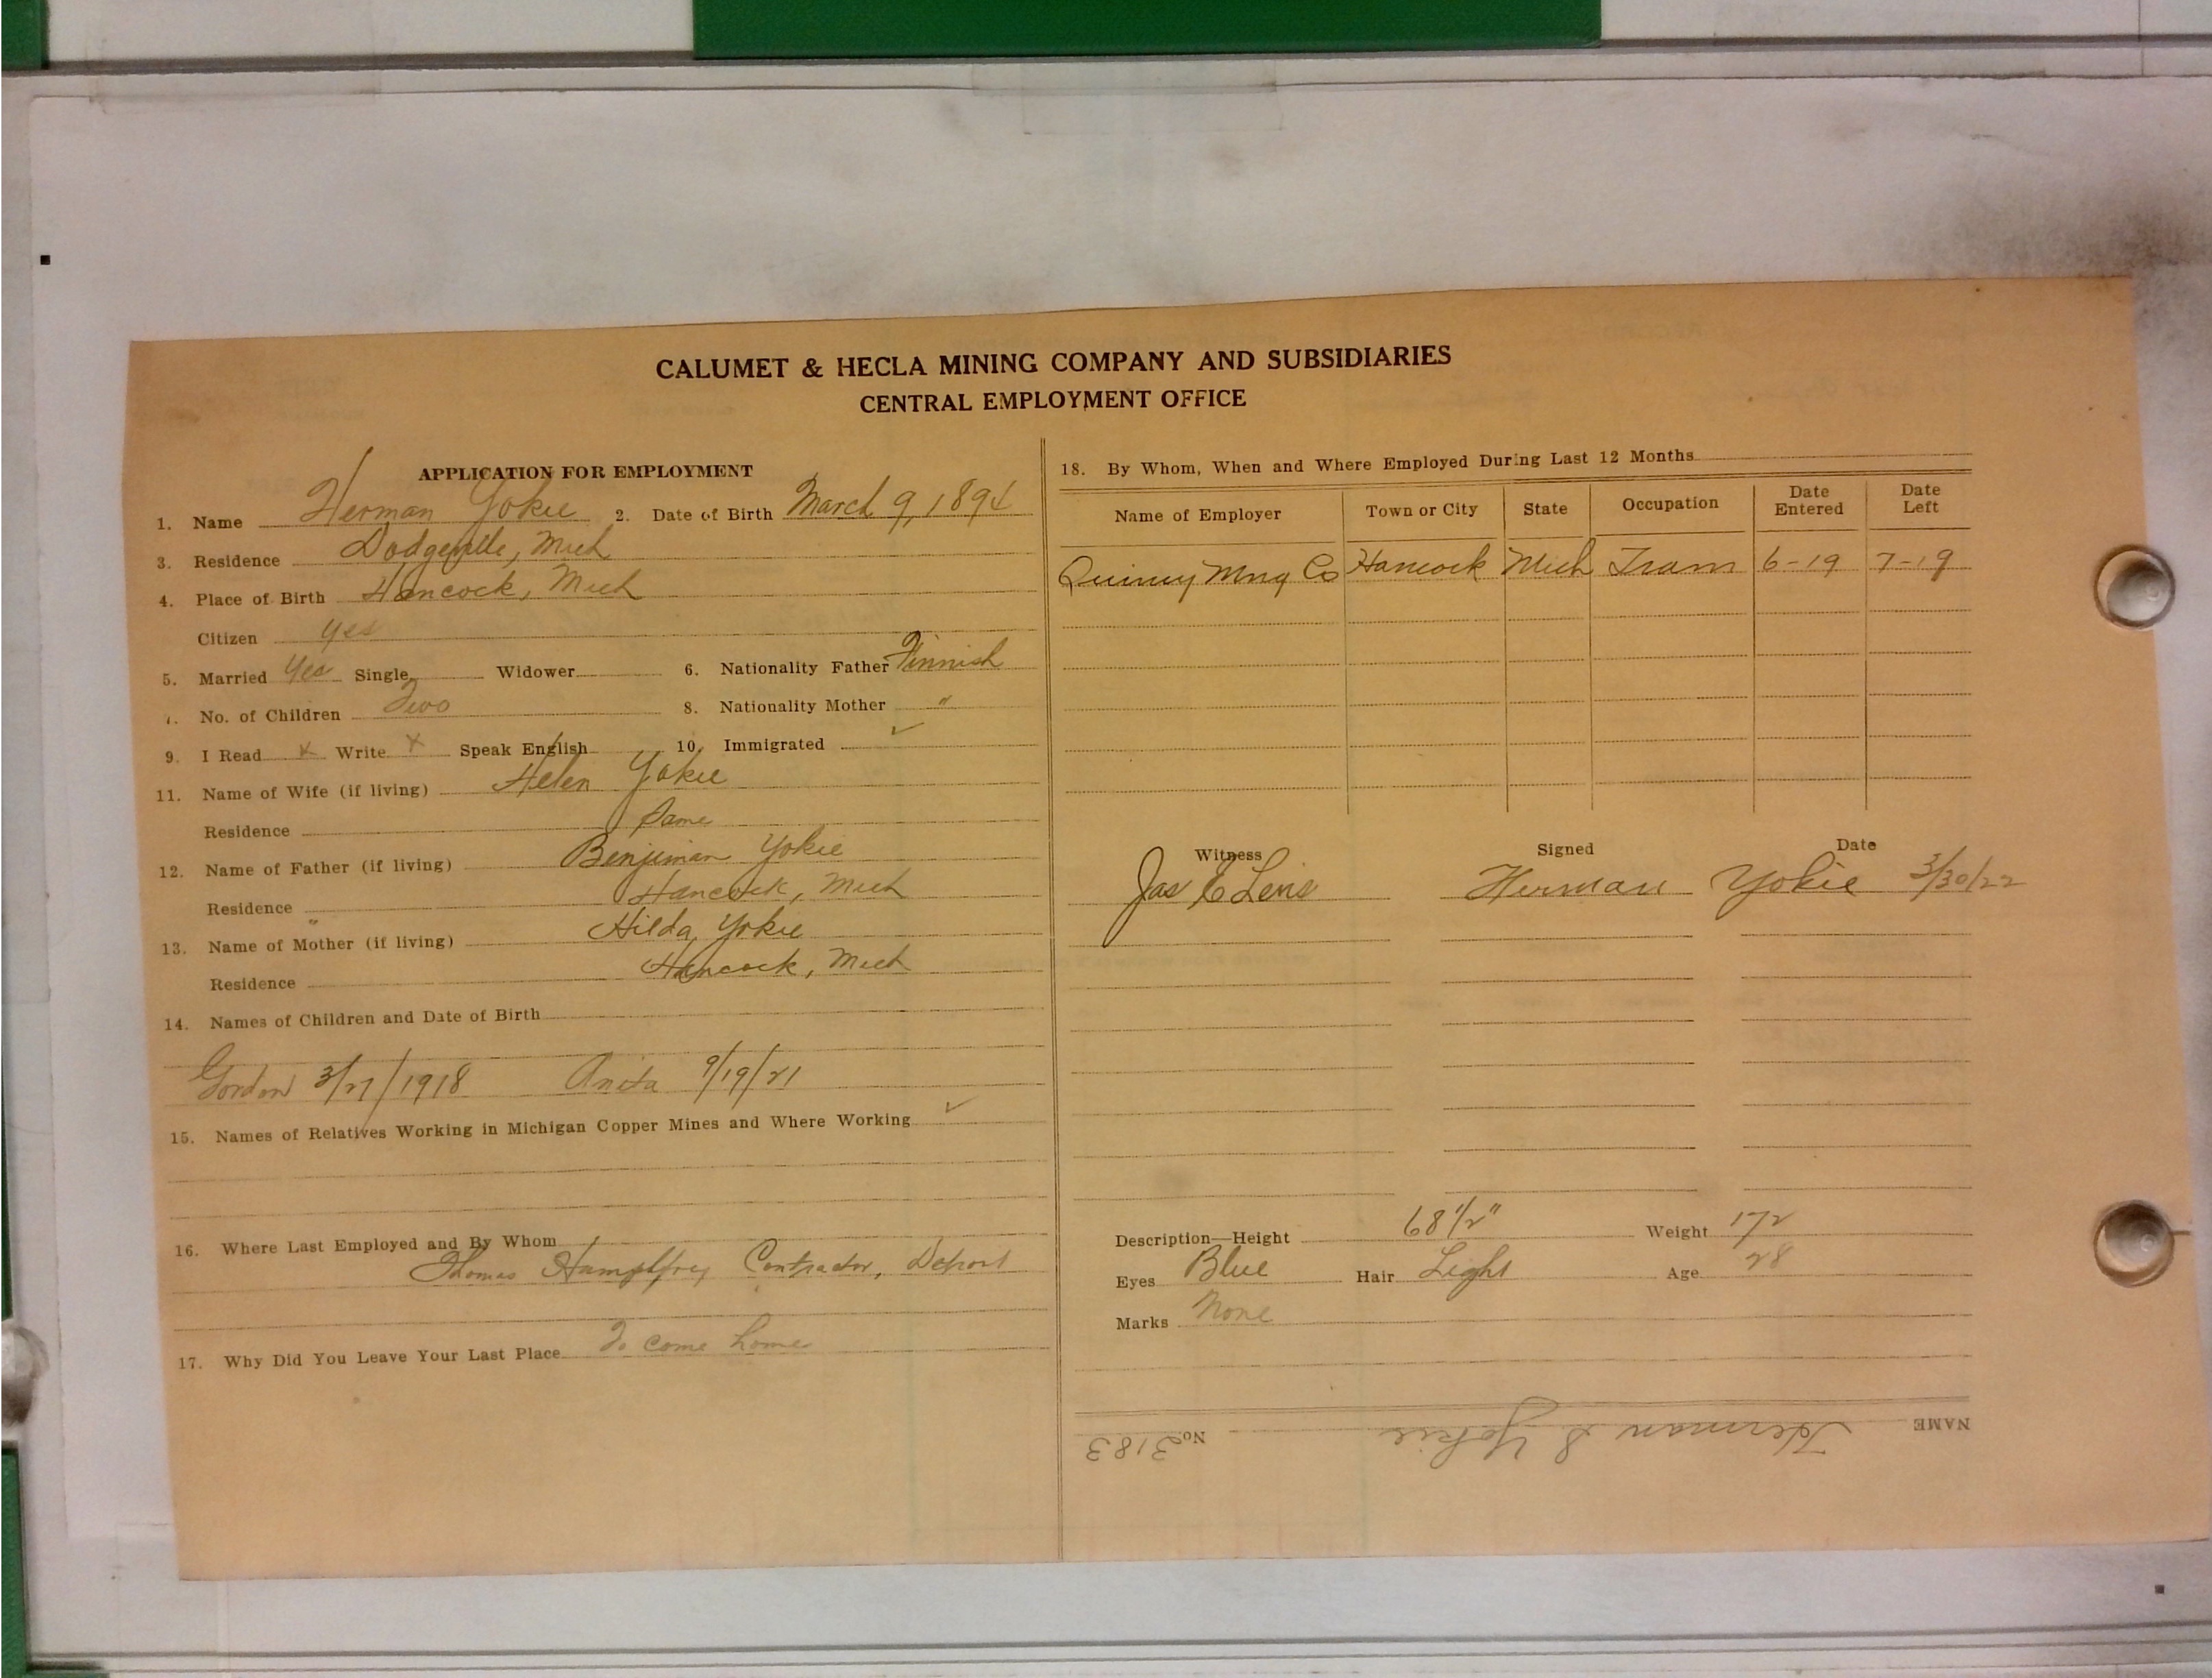 CALUMET & HECLA MINING COMPANY AND SUBSIDIARIES
CENTRAL EMPLOYMENT OFFICE
APPLICATION FOR EMPLOYMENT
1. Name Herman Yokie 2. Date of Birth March 9, 1894
3. Residence Dodgeville, Mich
4. Place of Birth Hancock, Mich
Citizen yes
5. Married Yes Single Widower 6. Nationality Father Finnish
7. No. of Children Two 8. Nationality Mother "
9. I Read x Write x Speak English 10. Immigrated ✓
11. Name of Wife (if living) Helen Yokie
Residence Same
12. Name of Father (if living) Benjiman Yokie
Residence Hancock, Mich
13. Name of Mother (if living) Hilda Yokie
Residence Hancock, Mich
14. Names of Children and Date of Birth
Gordon 3/27/1918 Anita 9/19/21
15. Names of Relatives Working in Michigan Copper Mines and Where Working ✓
16. Where Last Employed and By Whom
Thomas Humphrey Contractor, Detroit
17. Why Did You Leave Your Last Place To come home
18. By Whom, When and Where Employed During Last 12 Months
Name of Employer Town or City State Occupation Date Entered Date Left
Quincy Mng Co Hancock Mich Tram 6-19 7-19
Witness Signed Date
Jas E Herman Yokie 3/30/22
Description—Height 68 1/2" Weight 172
Eyes Blue Hair Light Age 28
Marks None
NAME Herman S Yokie No. 3183